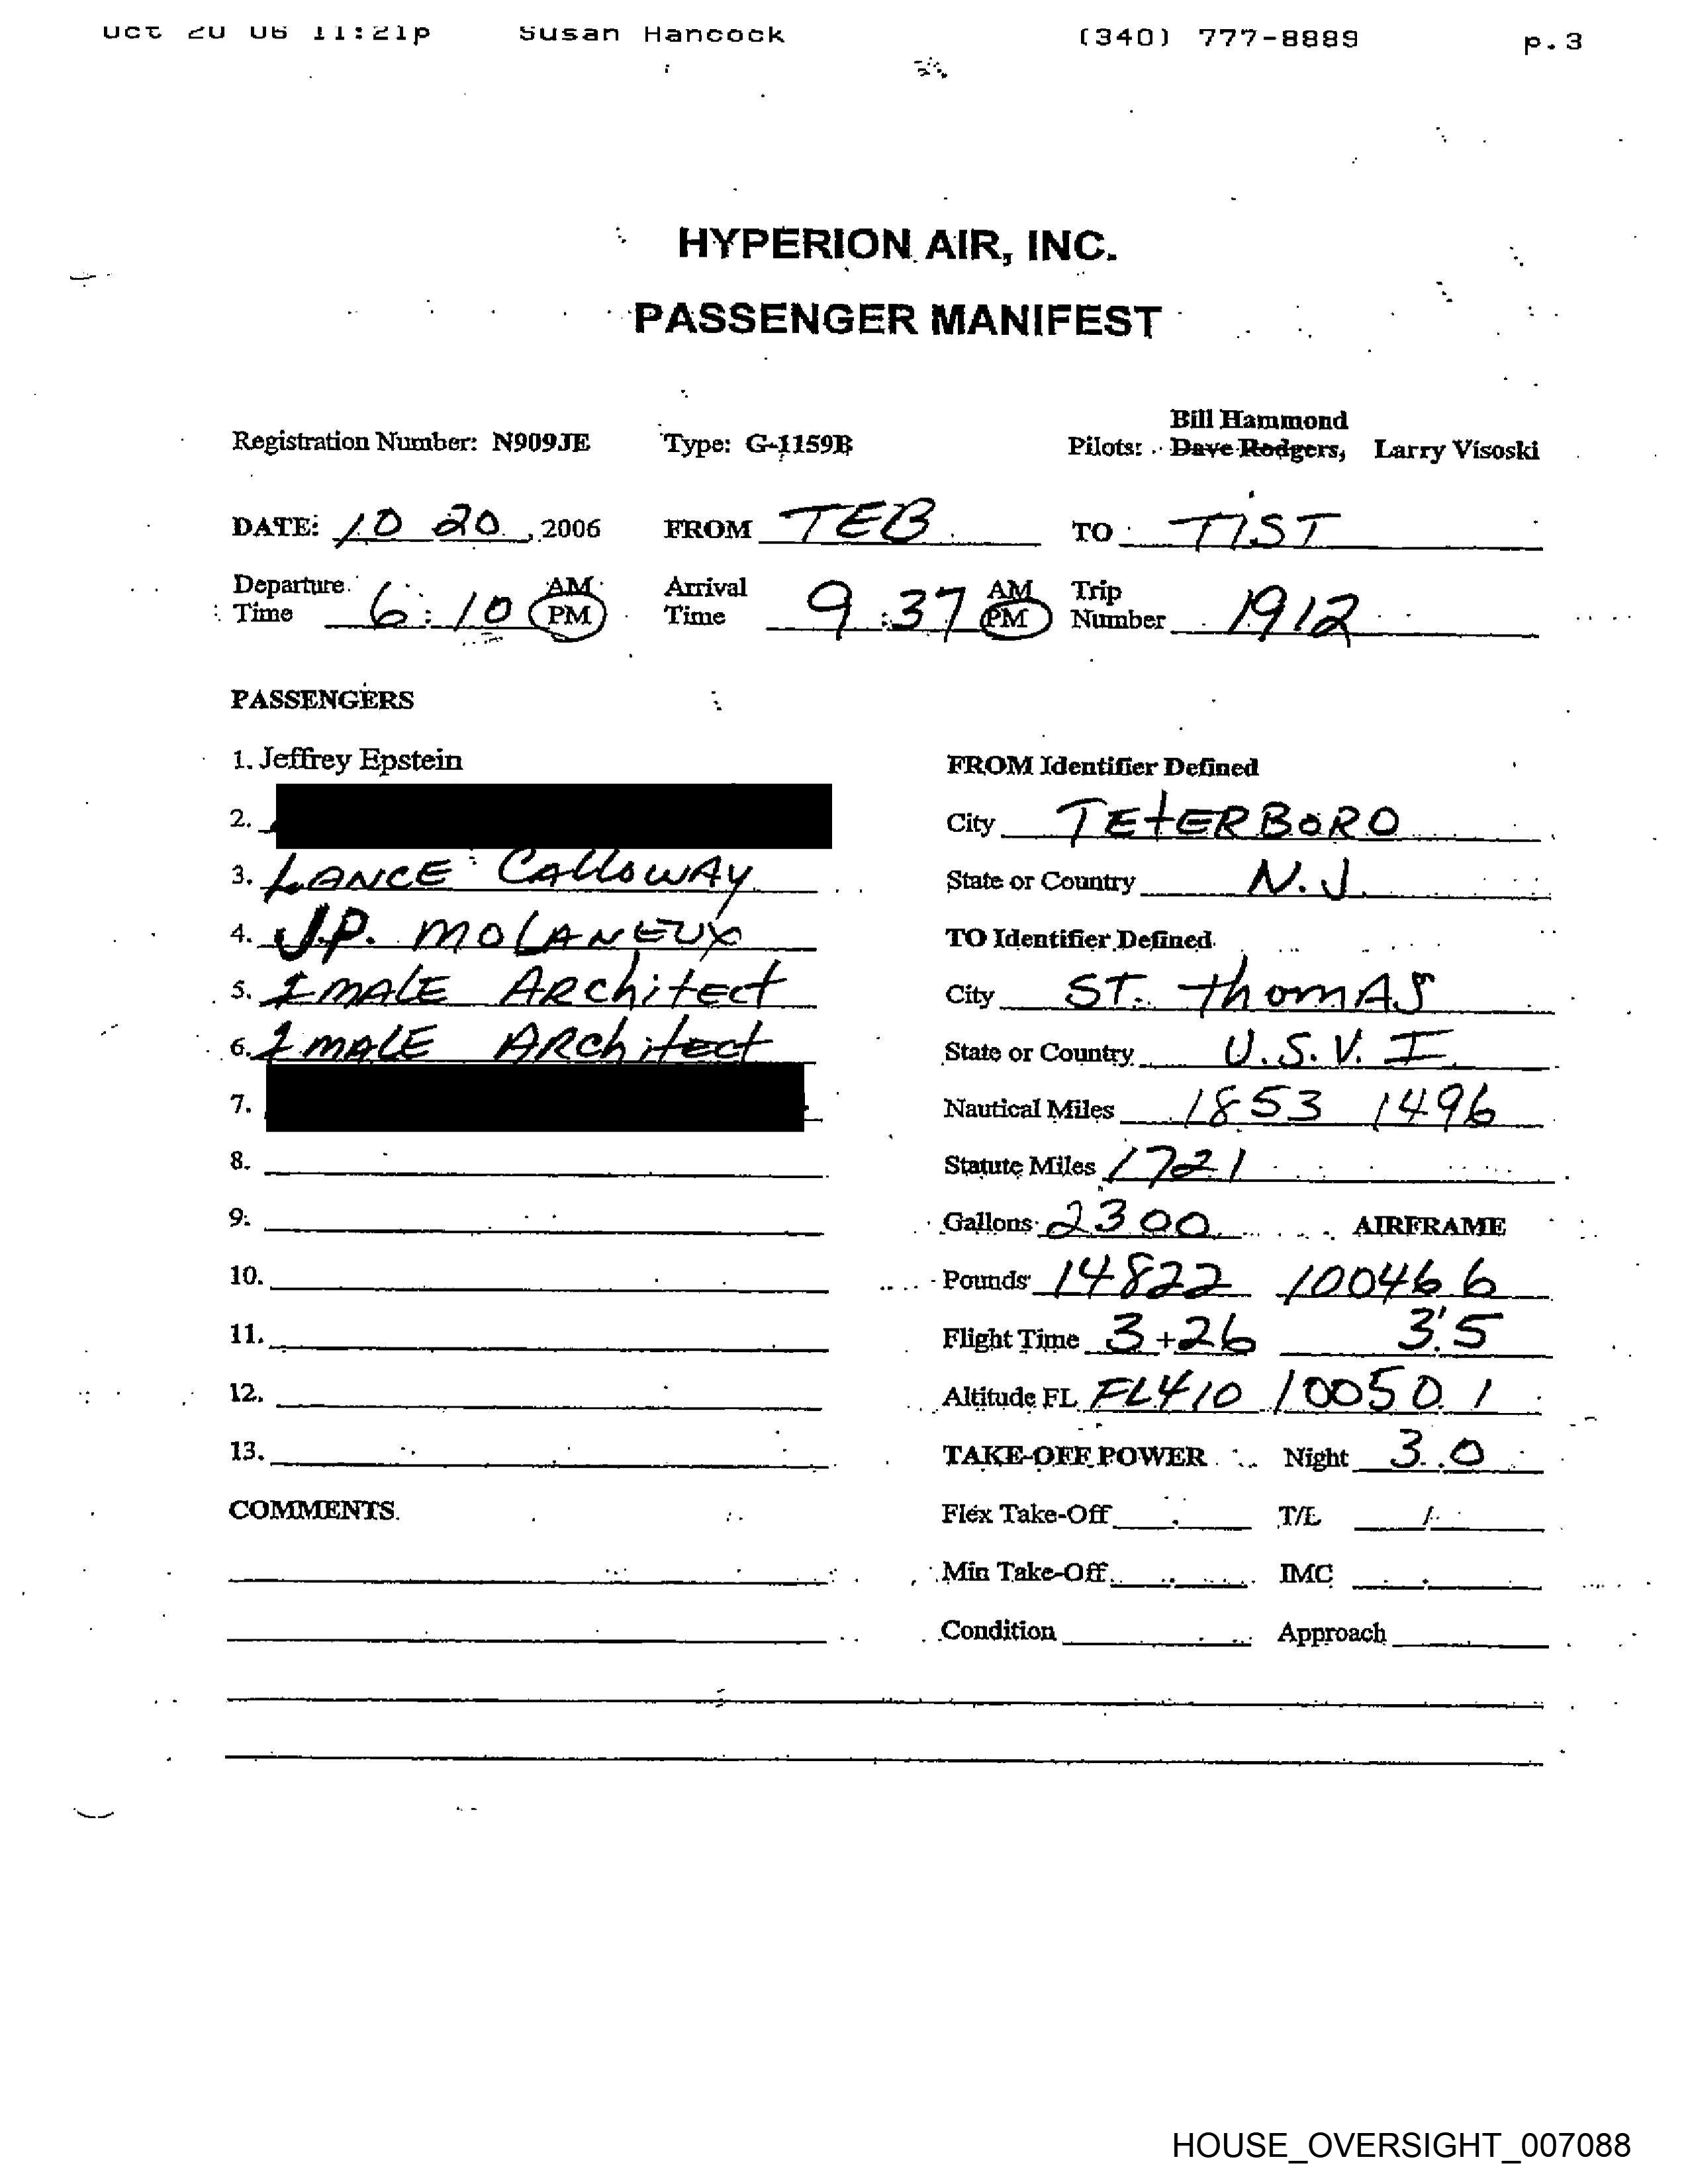 Oct 20 06 11:21p Susan Hancock (340) 777-8889 p.3
HYPERION AIR, INC.
PASSENGER MANIFEST
Bill Hammond
Registration Number: N909JE Type: G-1159B Pilots: Dave Rodgers, Larry Visoski
DATE: 10 20, 2006 FROM TEB TO TIST
Departure Time 6:10 AM PM Arrival Time 9:37 AM PM Trip Number 1912
PASSENGERS
1. Jeffrey Epstein
2.
3. LANCE CALLOWAY
4. J.P. MOLANEUX
5. 1 MALE ARchitect
6. 1 MALE ARchitect
7.
8.
9.
10.
11.
12.
13.
COMMENTS
FROM Identifier Defined
City TEtERBORO
State or Country N.J.
TO Identifier Defined
City ST. thomAS
State or Country U.S.V.I.
Nautical Miles 1853 1496
Statute Miles 1721
Gallons 2300 AIRFRAME
Pounds 14822 10046.6
Flight Time 3+26 3.5
Altitude FL FL410 10050.1
TAKE-OFF POWER Night 3.0
Flex Take-Off T/L /
Min Take-Off IMC
Condition Approach
HOUSE_OVERSIGHT_007088